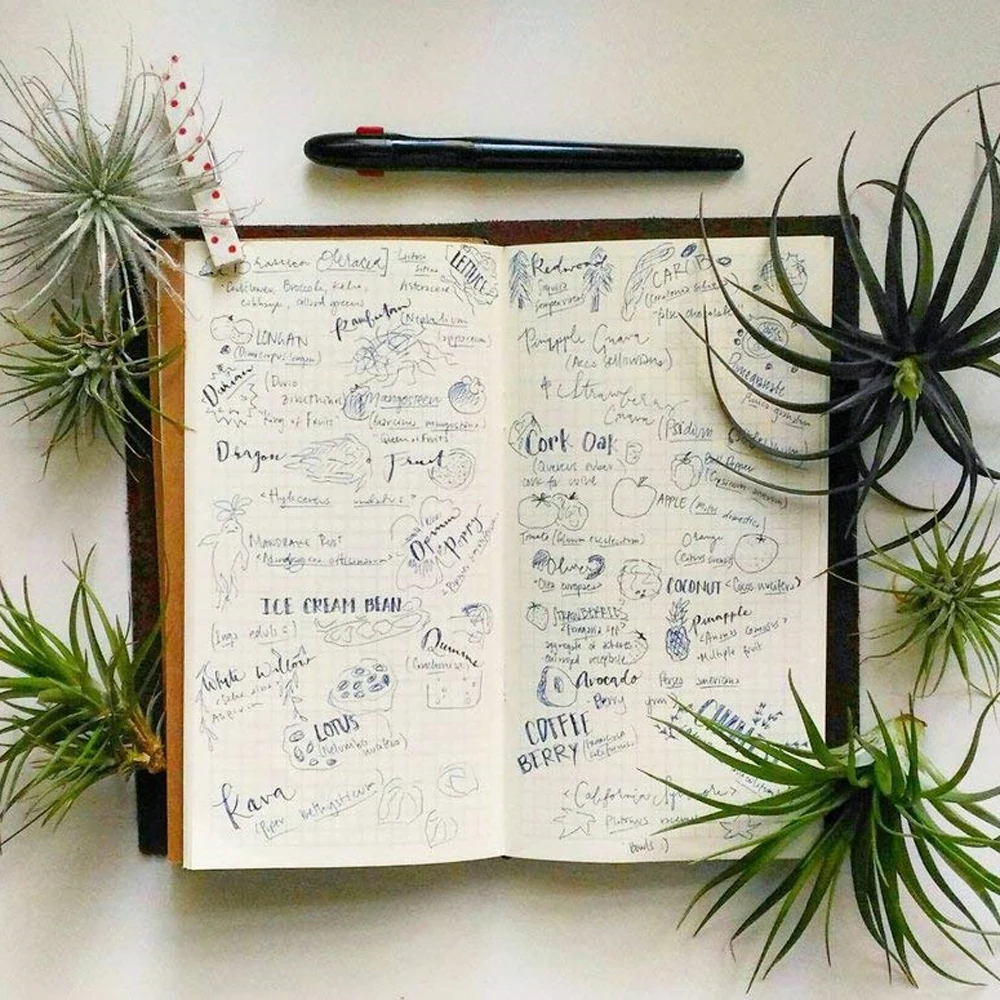 Brassica Oleracea]
Lactuca Sativa
Asteraceae
LETTUCE
Cauliflower, Broccoli, Kale,
cabbage, collard greens
LONGAN
(Dimocarpus longan)
Rambutan
(Nephelium
lappaceum)
Durian
(Durio
zibethinus)
King of Fruits
Mangosteen
(Garcinia mangostana)
Queen of Fruits
Dragon Fruit
<Hylocereus undatus>
MANDRAKE ROOT
<Mandragora officinarum>
Opium
Poppy
ICE CREAM BEAN
(Inga edulis)
White Willow
<Salix alba>
Aspirin
Quinine
LOTUS
(Nelumbo nucifera)
Kava
(Piper methysticum)
Redwood
Sequoia
sempervirens
CAROB
(Ceratonia
false chocolate
Pomegranate
Punica granatum
Pineapple Guava
(Acca sellowiana)
Strawberry
Guava (Psidium
Cork Oak
(Quercus suber)
cork for wine
Bell Pepper
(Capsicum annuum)
APPLE (Malus domestica)
Tomato (Solanum
Orange
(Citrus sinensis)
Olive
<Olea europaea>
COCONUT <Cocos nucifera>
STRAWBERRIES
<Fragaria spp>
aggregate of achenes
enlarged receptacle
Pineapple
<Ananas comosus>
Multiple fruit
Avocado Persea americana
Berry
COFFEE
BERRY (Frangula
californica)
<California Sycamore>
Platanus racemosa
Bowls :)